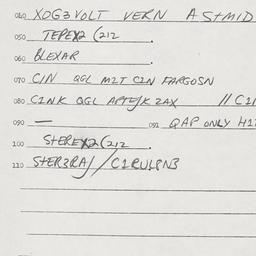 040 XOG3VOLT VERN ASTMID
050 TEPEX2 (212
060 BLEXAR
070 CIN QGL M2T C2N FARGOSN
080 C2NK QGL APTE/K 2AX // C1
090 — 091 QAP ONLY H1
100 STEREX2 (212
110 STER3RAJ / C1RULPN3